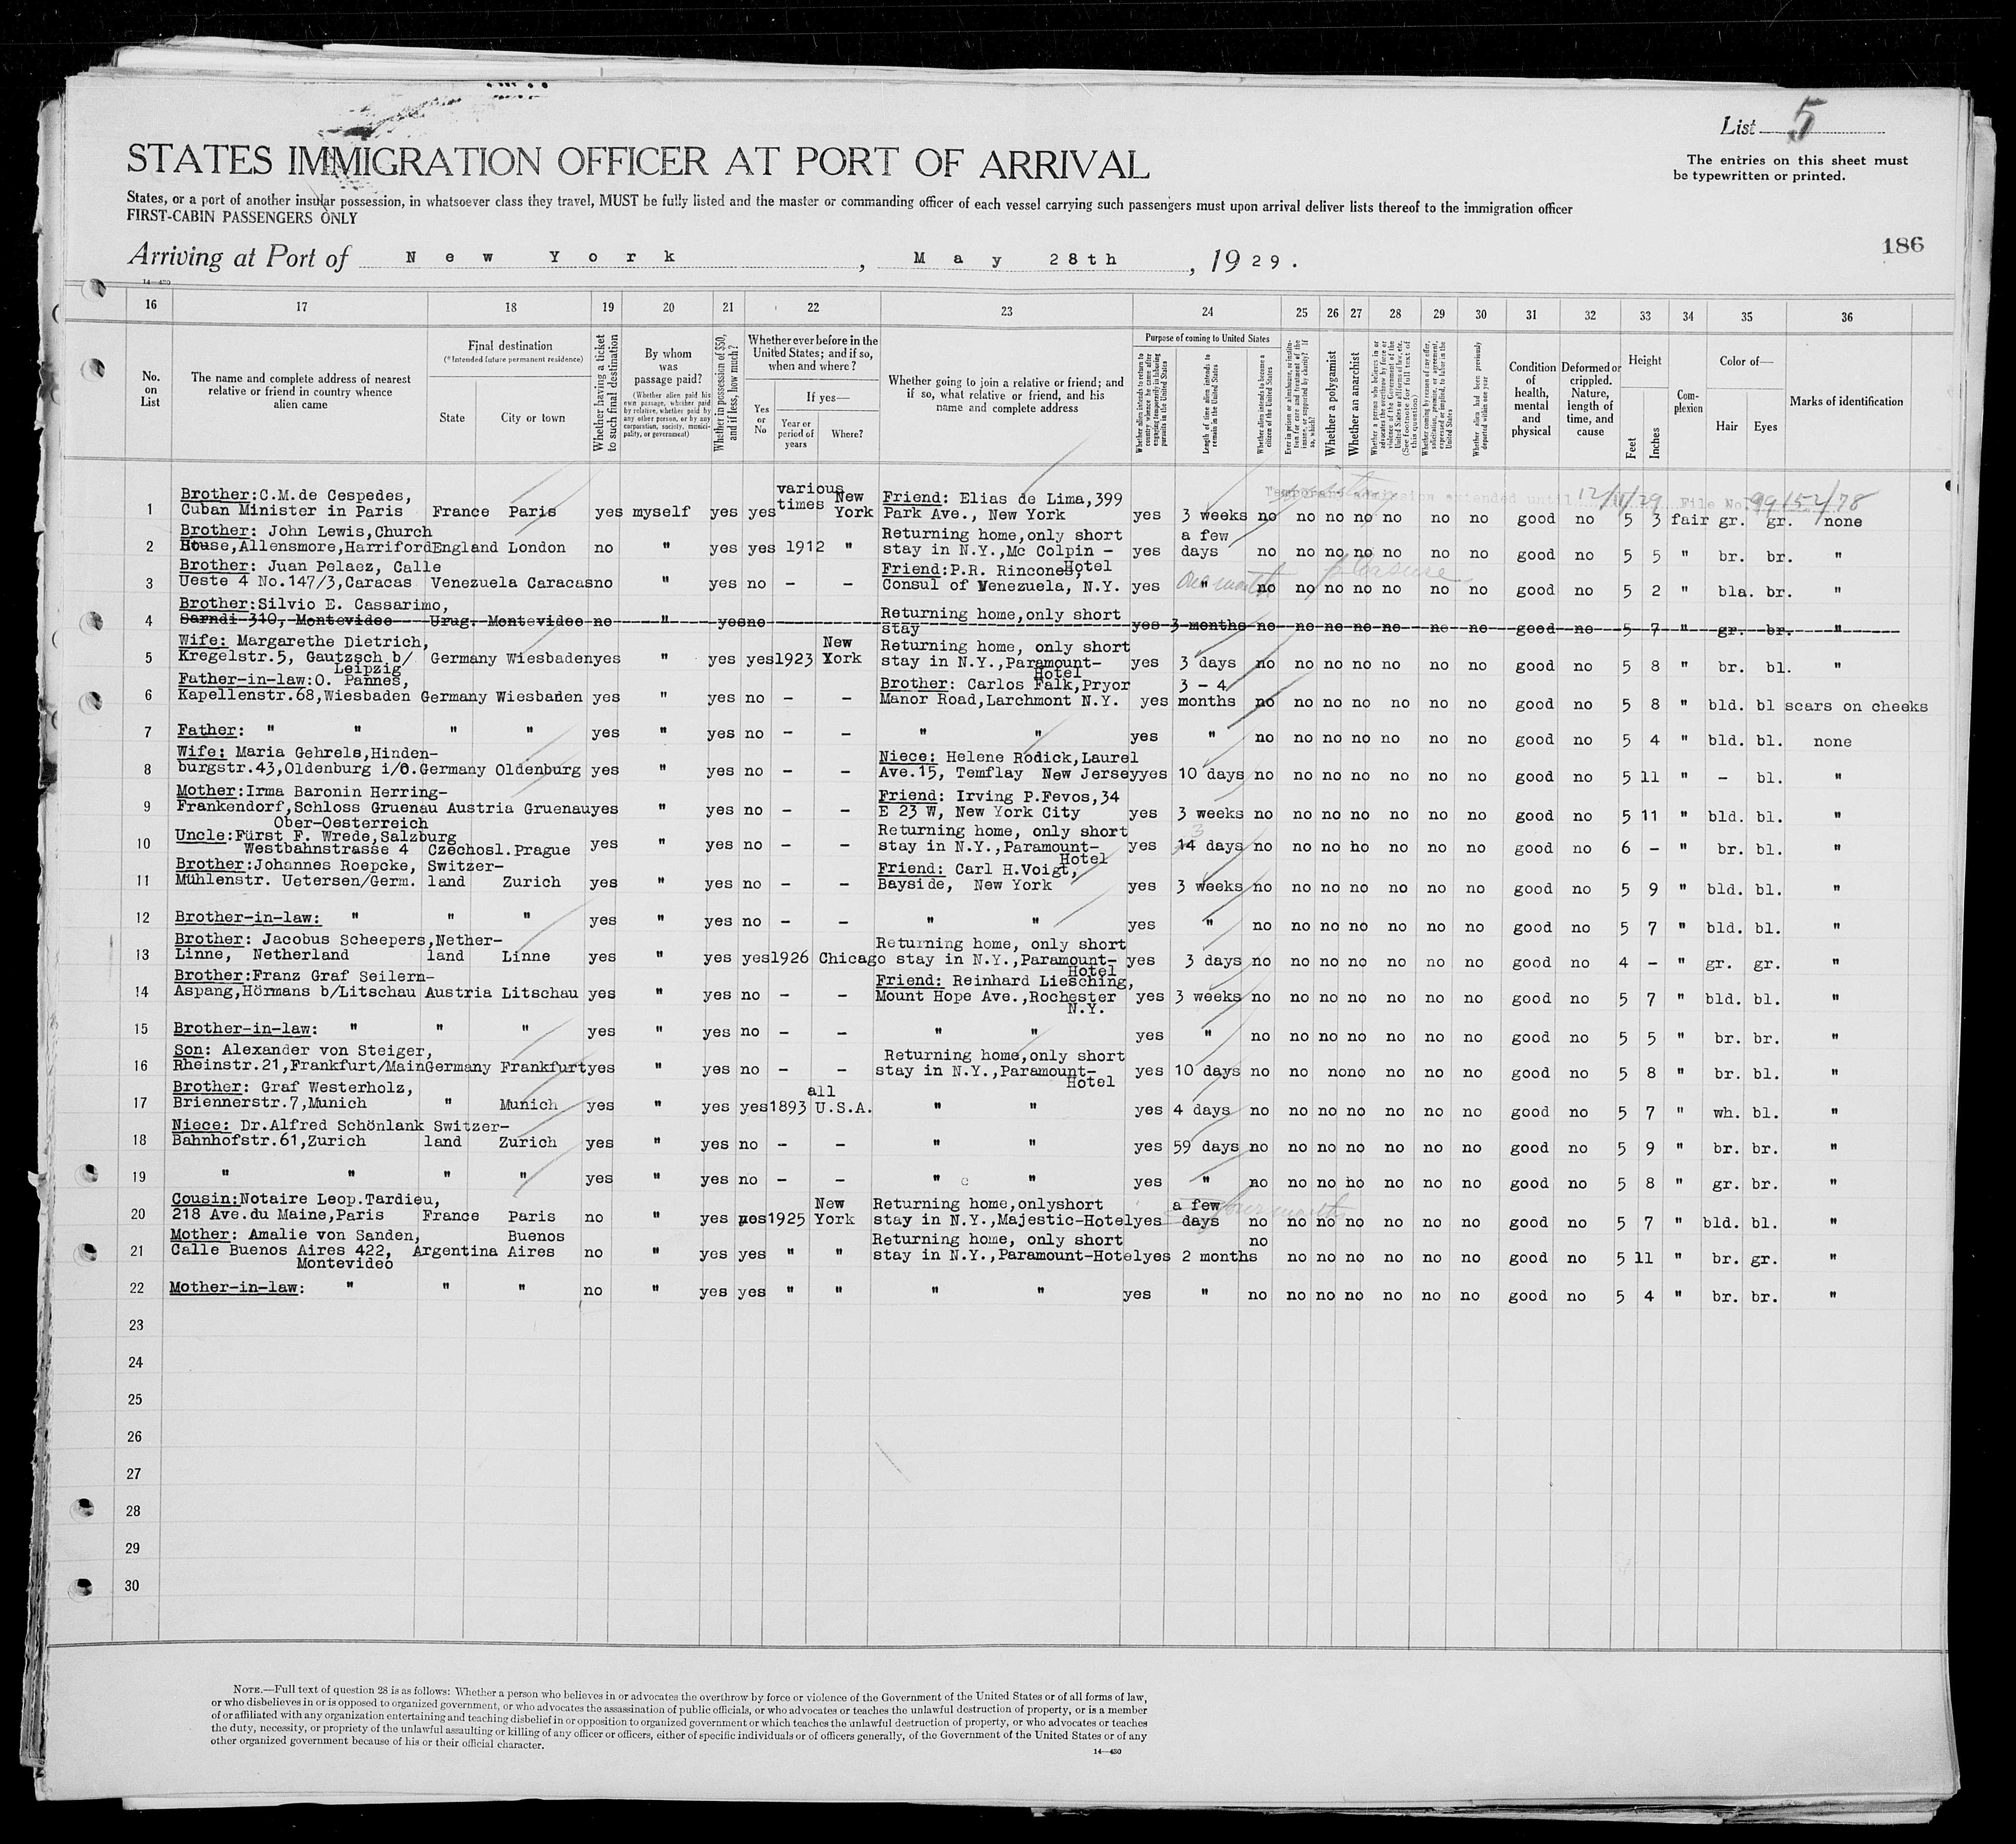 List 5
STATES IMMIGRATION OFFICER AT PORT OF ARRIVAL
The entries on this sheet must
be typewritten or printed.
States, or a port of another insular possession, in whatsoever class they travel, MUST be fully listed and the master or commanding officer of each vessel carrying such passengers must upon arrival deliver lists thereof to the immigration officer
FIRST-CABIN PASSENGERS ONLY
Arriving at Port of New York, May 28th, 1929.
186
14—430
16 17 18 19 20 21 22 23 24 25 26 27 28 29 30 31 32 33 34 35 36
No. on List
The name and complete address of nearest relative or friend in country whence alien came
Final destination
(*Intended future permanent residence)
State
City or town
Whether having a ticket to such final destination
By whom was passage paid?
(Whether alien paid his own passage, whether paid by relative, whether paid by any other person, or by any corporation, society, municipality, or government)
Whether in possession of $50, and if less, how much?
Whether ever before in the United States; and if so, when and where?
Yes or No
If yes—
Year or period of years
Where?
Whether going to join a relative or friend; and if so, what relative or friend, and his name and complete address
Purpose of coming to United States
Whether alien intends to return to country whence he came after engaging temporarily in laboring pursuits in the United States
Length of time alien intends to remain in the United States
Whether alien intends to become a citizen of the United States
Ever in prison or almshouse, or institution for care and treatment of the insane, or supported by charity? If so, which?
Whether a polygamist
Whether an anarchist
Whether a person who believes in or advocates the overthrow by force or violence of the Government of the United States or all forms of law, etc. (See footnote for full text of this question)
Whether coming by reason of any offer, solicitation, promise, or agreement, expressed or implied, to labor in the United States
Whether alien had been previously deported within one year
Condition of health, mental and physical
Deformed or crippled. Nature, length of time, and cause
Height
Feet
Inches
Complexion
Color of—
Hair
Eyes
Marks of identification
Temporary admission extended until 12/11/29 File No. 99152/78
1 Brother: C.M.de Cespedes, Cuban Minister in Paris France Paris yes myself yes yes various times New York Friend: Elias de Lima,399 Park Ave., New York yes 3 weeks no no no no no no no good no 5 3 fair gr. gr. none
2 Brother: John Lewis,Church House,Allensmore,Harriford England London no " yes yes 1912 " Returning home,only short stay in N.Y.,Mc Colpin - Hotel yes a few days no no no no no no no good no 5 5 " br. br. "
3 Brother: Juan Pelaez, Calle Ueste 4 No.147/3,Caracas Venezuela Caracas no " yes no - - Friend:P.R. Rincones, Consul of Venezuela, N.Y. yes " one month no pleasure no no no no no no good no 5 2 " bla. br. "
4 Brother:Silvio E. Cassarimo, Sarndi 310, Montevideo Urug. Montevideo no " yes no Returning home,only short stay yes 3 months no no no no no no no good no 5 7 " gr. br. "
5 Wife: Margarethe Dietrich, Kregelstr.5, Gautzsch b/ Leipzig Germany Wiesbaden yes " yes yes 1923 New York Returning home, only short stay in N.Y.,Paramount- Hotel yes 3 days no no no no no no no good no 5 8 " br. bl. "
6 Father-in-law:O. Pannes, Kapellenstr.68,Wiesbaden Germany Wiesbaden yes " yes no - - Brother: Carlos Falk,Pryor Manor Road,Larchmont N.Y. yes 3 - 4 months no no no no no no no good no 5 8 " bld. bl scars on cheeks
7 Father: " " " " yes " yes no - - " " yes " no no no no no no no good no 5 4 " bld. bl. none
8 Wife: Maria Gehrels,Hindenburgstr.43,Oldenburg i/O. Germany Oldenburg yes " yes no - - Niece: Helene Rodick,Laurel Ave.15, Temflay New Jersey yes 10 days no no no no no no no good no 5 11 " - bl. "
9 Mother:Irma Baronin Herring-Frankendorf,Schloss Gruenau Ober-Oesterreich Austria Gruenau yes " yes no - - Friend: Irving P.Fevos,34 E 23 W, New York City yes 3 weeks no no no no no no no good no 5 11 " bld. bl. "
10 Uncle:Fürst F. Wrede,Salzburg Westbahnstrasse 4 Czechosl. Prague yes " yes no - - Returning home, only short stay in N.Y.,Paramount- Hotel yes 3 14 days no no no no no no no good no 6 - " br. bl. "
11 Brother:Johannes Roepcke, Mühlenstr. Uetersen/Germ. Switzerland Zurich yes " yes no - - Friend: Carl H.Voigt, Bayside, New York yes 3 weeks no no no no no no no good no 5 9 " bld. bl. "
12 Brother-in-law: " " " yes " yes no - - " " yes " no no no no no no no good no 5 7 " bld. bl. "
13 Brother: Jacobus Scheepers, Linne, Netherland Netherland Linne yes " yes yes 1926 Chicago Returning home, only short stay in N.Y.,Paramount- Hotel yes 3 days no no no no no no no good no 4 - " gr. gr. "
14 Brother:Franz Graf Seilern-Aspang,Hörmans b/Litschau Austria Litschau yes " yes no - - Friend: Reinhard Liesching, Mount Hope Ave.,Rochester N.Y. yes 3 weeks no no no no no no no good no 5 7 " bld. bl. "
15 Brother-in-law: " " " yes " yes no - - " " yes " no no no no no no no good no 5 5 " br. br. "
16 Son: Alexander von Steiger, Rheinstr.21,Frankfurt/Main Germany Frankfurt yes " yes no - - Returning home,only short stay in N.Y.,Paramount- Hotel yes 10 days no no no no no no no good no 5 8 " br. bl. "
17 Brother: Graf Westerholz, Briennerstr.7,Munich " Munich yes " yes yes 1893 all U.S.A. " " yes 4 days no no no no no no no good no 5 7 " wh. bl. "
18 Niece: Dr.Alfred Schönlank Bahnhofstr.61,Zurich Switzerland Zurich yes " yes no - - " " yes 59 days no no no no no no no good no 5 9 " br. br. "
19 " " " " yes " yes no - - " " yes " no no no no no no no good no 5 8 " gr. br. "
20 Cousin:Notaire Leop.Tardieu, 218 Ave.du Maine,Paris France Paris no " yes yes 1925 New York Returning home,onlyshort stay in N.Y.,Majestic-Hotel yes a few days four months no no no no no no no good no 5 7 " bld. bl. "
21 Mother: Amalie von Sanden, Calle Buenos Aires 422, Montevideo Argentina Buenos Aires no " yes yes " " Returning home, only short stay in N.Y.,Paramount-Hotel yes 2 months no no no no no no no good no 5 11 " br. gr. "
22 Mother-in-law: " " " no " yes yes " " " " yes " no no no no no no no good no 5 4 " br. br. "
23
24
25
26
27
28
29
30
NOTE.—Full text of question 28 is as follows: Whether a person who believes in or advocates the overthrow by force or violence of the Government of the United States or of all forms of law,
or who disbelieves in or is opposed to organized government, or who advocates the assassination of public officials, or who advocates or teaches the unlawful destruction of property, or is a member
of or affiliated with any organization entertaining and teaching disbelief in or opposition to organized government or which teaches the unlawful destruction of property, or who advocates or teaches
the duty, necessity, or propriety of the unlawful assaulting or killing of any officer or officers, either of specific individuals or of officers generally, of the Government of the United States or of any
other organized government because of his or their official character.
14—430